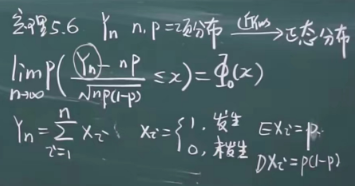 定理5.6 Yn n,p=项分布 近似 正态分布
lim n→∞ P( Yn - np / √np(1-p) ≤ x ) = Φ₀(x)
Yn = Σ i=1 n Xi Xi = { 1, 发生 0, 未发生 EXi = p. DXi = p(1-p)